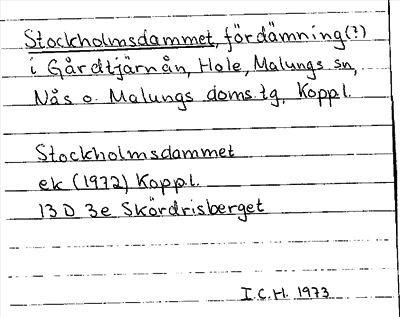 Stockholmsdammet, fördämning(?)
i Gårdtjärnån, Hole, Malungs sn,
Nås o. Malungs doms.tg, Koppl.
Stockholmsdammet
ek (1972) Koppl.
13 D 3e Skördrisberget
I.C.H. 1973